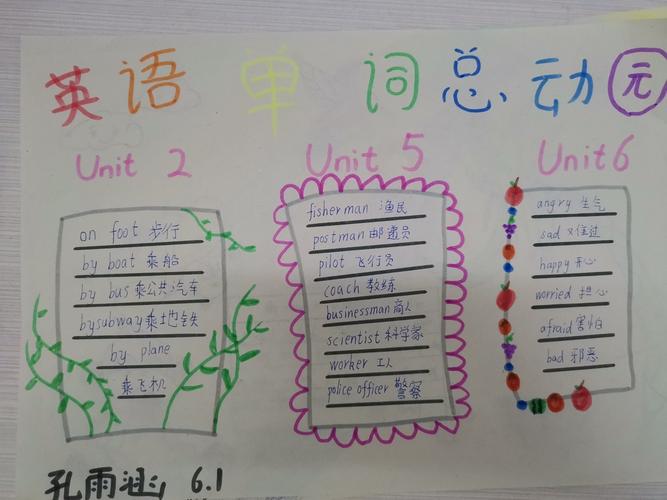 英语单词总动园
Unit 2
on foot 步行
by boat 乘船
by bus 乘公共汽车
by subway 乘地铁
by plane
乘飞机
Unit 5
fisherman 渔民
postman 邮递员
pilot 飞行员
coach 教练
businessman 商人
scientist 科学家
worker 工人
police officer 警察
Unit 6
angry 生气
sad
happy 开心
worried 担心
afraid 害怕
bad 邪恶
孔雨涵 6.1